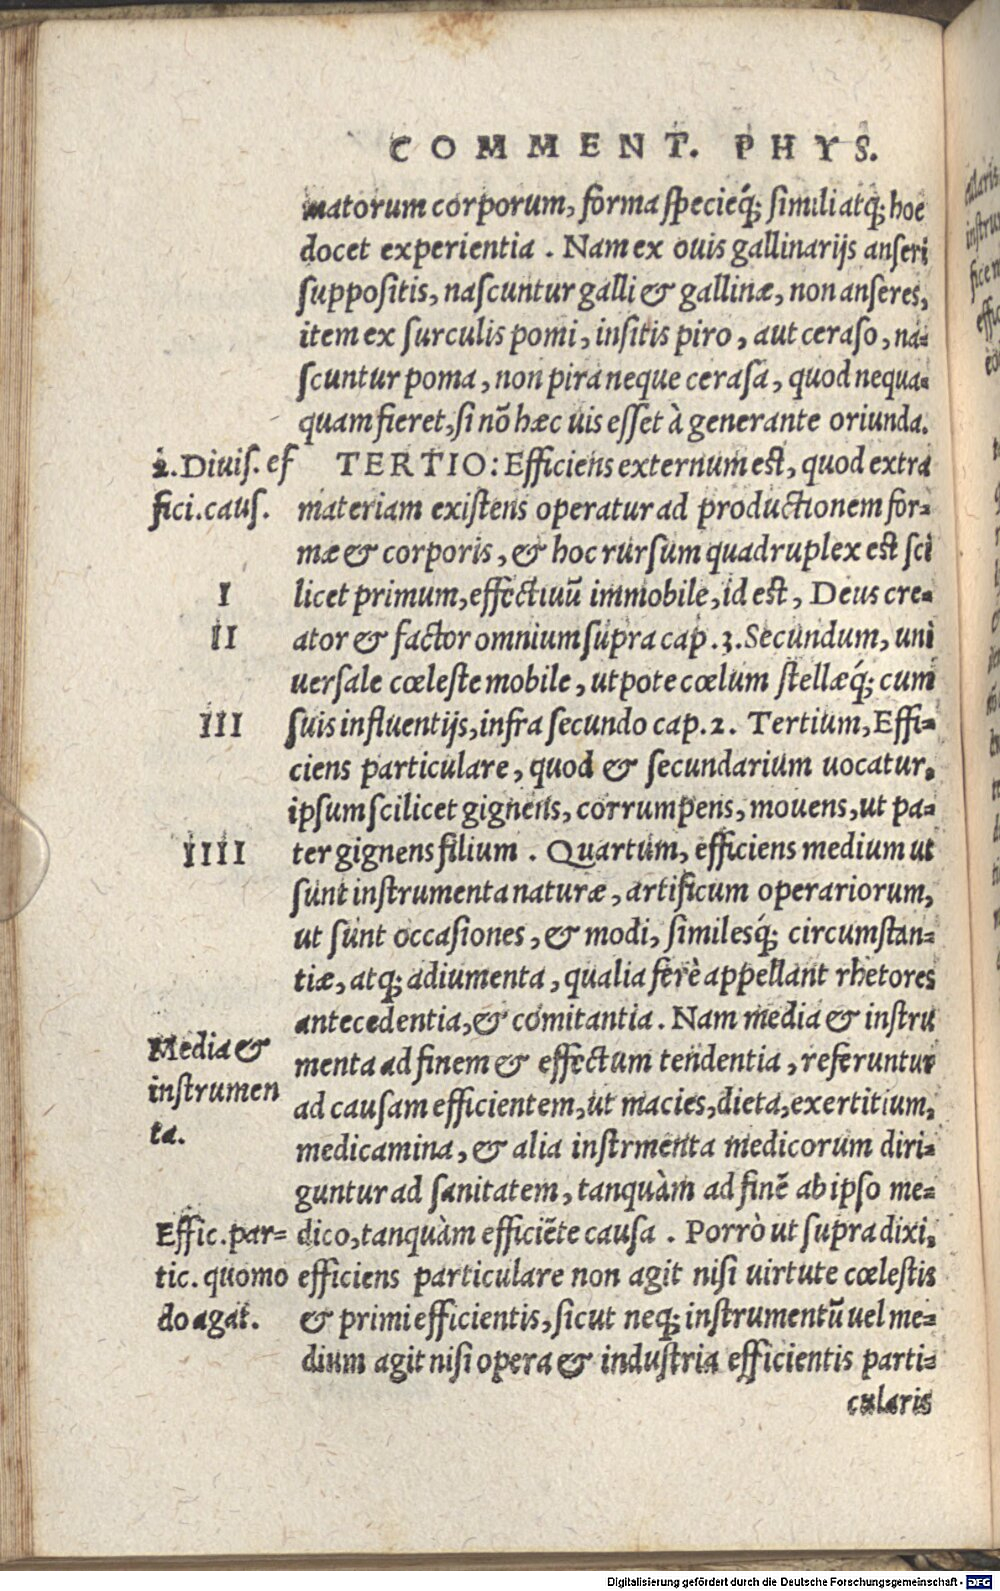 COMMENT. PHYS.
matorum corporum, forma specieq́; similiatq; hoc
docet experientia. Nam ex ouis gallinarijs anseri
suppositis, nascuntur galli & gallinæ, non anseres,
item ex surculis pomi, insitis piro, aut ceraso, na-
scuntur poma, non pira neque cerasa, quod nequa-
quam fieret, si nõ hæc uis esset à generante oriunda.
2. Diuis. ef
fici. caus.
TERTIO: Efficiens externum est, quod extra
materiam existens operatur ad productionem for-
mæ & corporis, & hoc rursum quadruplex est sci
I
licet primum, effectiuũ immobile, id est, Deus cre-
II
ator & factor omnium supra cap. 3. Secundum, uni
uersale cœleste mobile, utpote cœlum stellæq́; cum
III
suis influentijs, infra secundo cap. 2. Tertium, Effi-
ciens particulare, quod & secundarium uocatur,
ipsum scilicet gignens, corrumpens, mouens, ut pa-
IIII
ter gignens filium. Quartum, efficiens medium ut
sunt instrumenta naturæ, artificum operariorum,
ut sunt occasiones, & modi, similesq́; circumstan-
tiæ, atq; adiumenta, qualia ferè appellant rhetores
antecedentia, & comitantia. Nam media & instru
Media &
instrumen
ta.
menta ad finem & effectum tendentia, referuntur
ad causam efficientem, ut macies, dieta, exertitium,
medicamina, & alia instrmenta medicorum diri-
guntur ad sanitatem, tanquàm ad finẽ ab ipso me-
Effic. par-
tic. quomo
do agat.
dico, tanquàm efficiẽte causa. Porrò ut supra dixi,
efficiens particulare non agit nisi uirtute cœlestis
& primi efficientis, sicut neq; instrumentũ uel me-
dium agit nisi opera & industria efficientis parti-
cularis
Digitalisierung gefördert durch die Deutsche Forschungsgemeinschaft - DFG